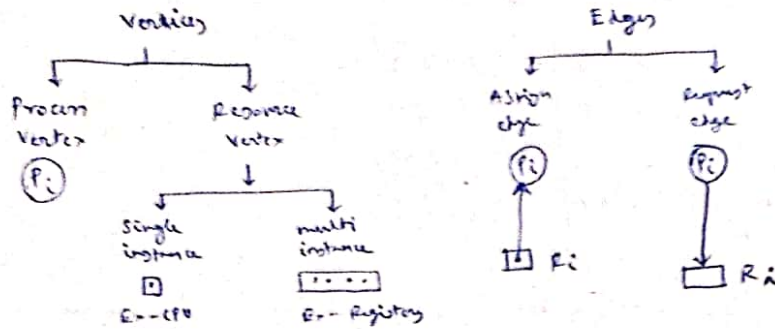 Vertices
Process
vertex
Pi
Resource
vertex
Single
instance
Ex--CPU
multi
instance
Ex-- Registers
Edges
Assign
edge
Pi
Ri
Request
edge
Pi
Ri